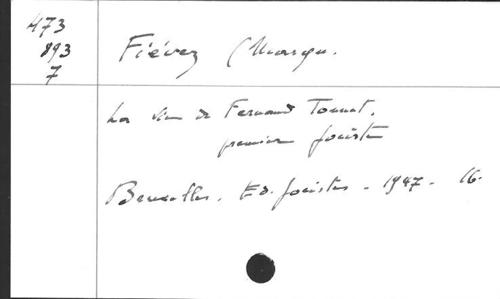 473
893
7
Fiévez (Marga.
La vie de Fernand Tonnet,
premier jociste
Bruxelles. Ed. Jocistes - 1947 - 16.